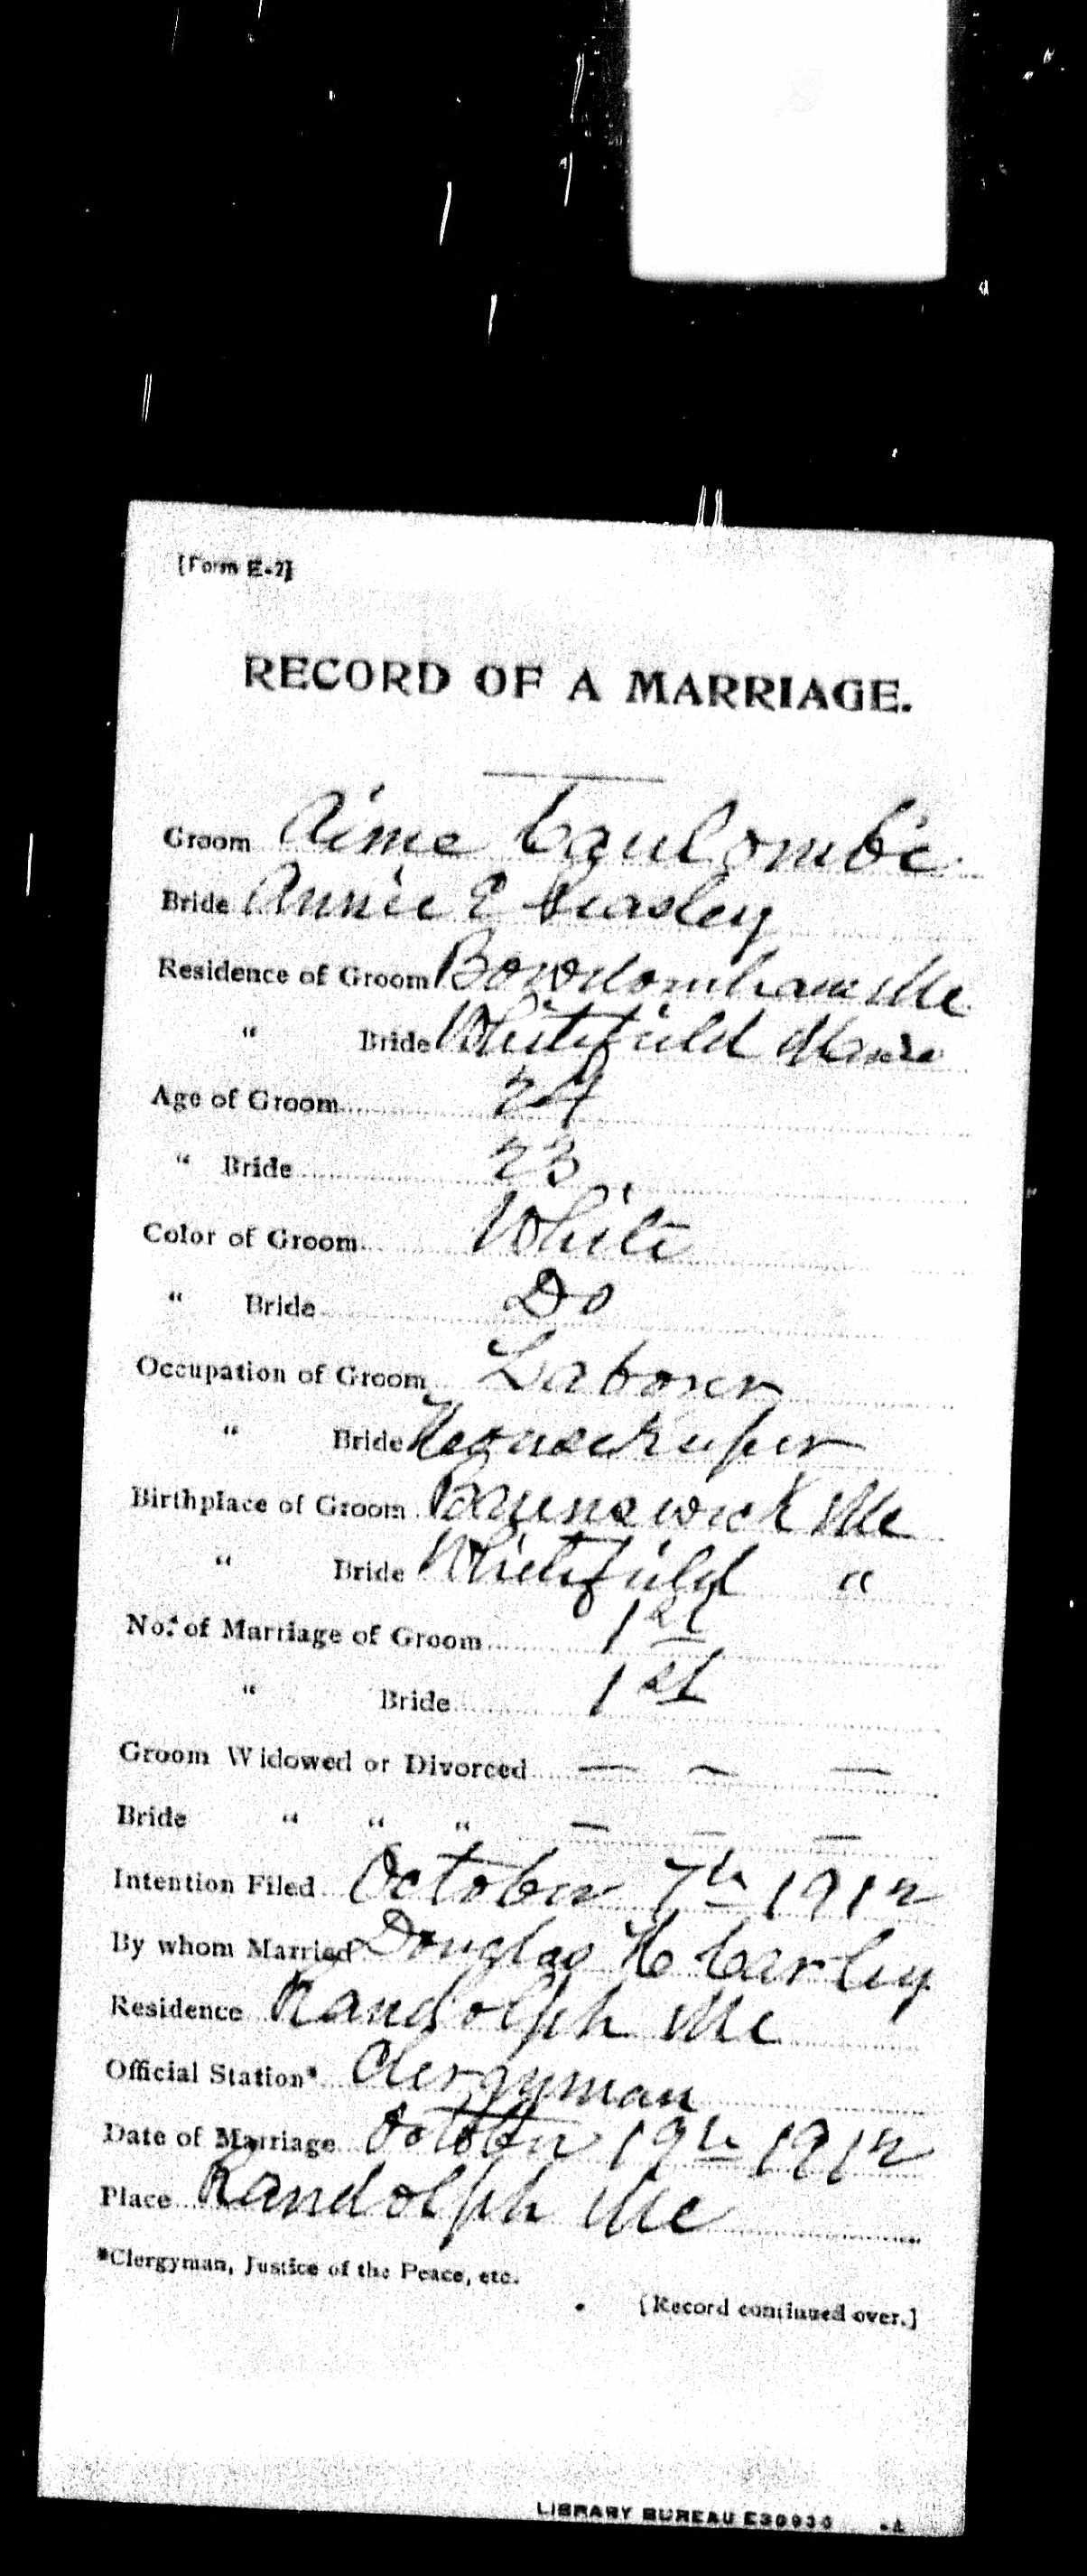 [Form E-2]
RECORD OF A MARRIAGE.
Groom Aime Caulombe
Bride Annie E
Residence of Groom Bowdoinham Me
" Bride Whitefield Maine
Age of Groom 24
" Bride 23
Color of Groom White
" Bride Do
Occupation of Groom Laborer
" Bride Housekeeper
Birthplace of Groom Brunswick Me
" Bride Whitefield "
No. of Marriage of Groom 1st
" Bride 1st
Groom Widowed or Divorced — — —
Bride " " " — — —
Intention Filed October 7th 1912
By whom Married Douglas H Corley
Residence Randolph Me
Official Station* Clergyman
Date of Marriage October 19th 1912
Place Randolph Me
*Clergyman, Justice of the Peace, etc.
[Record continued over.]
LIBRARY BUREAU E30930